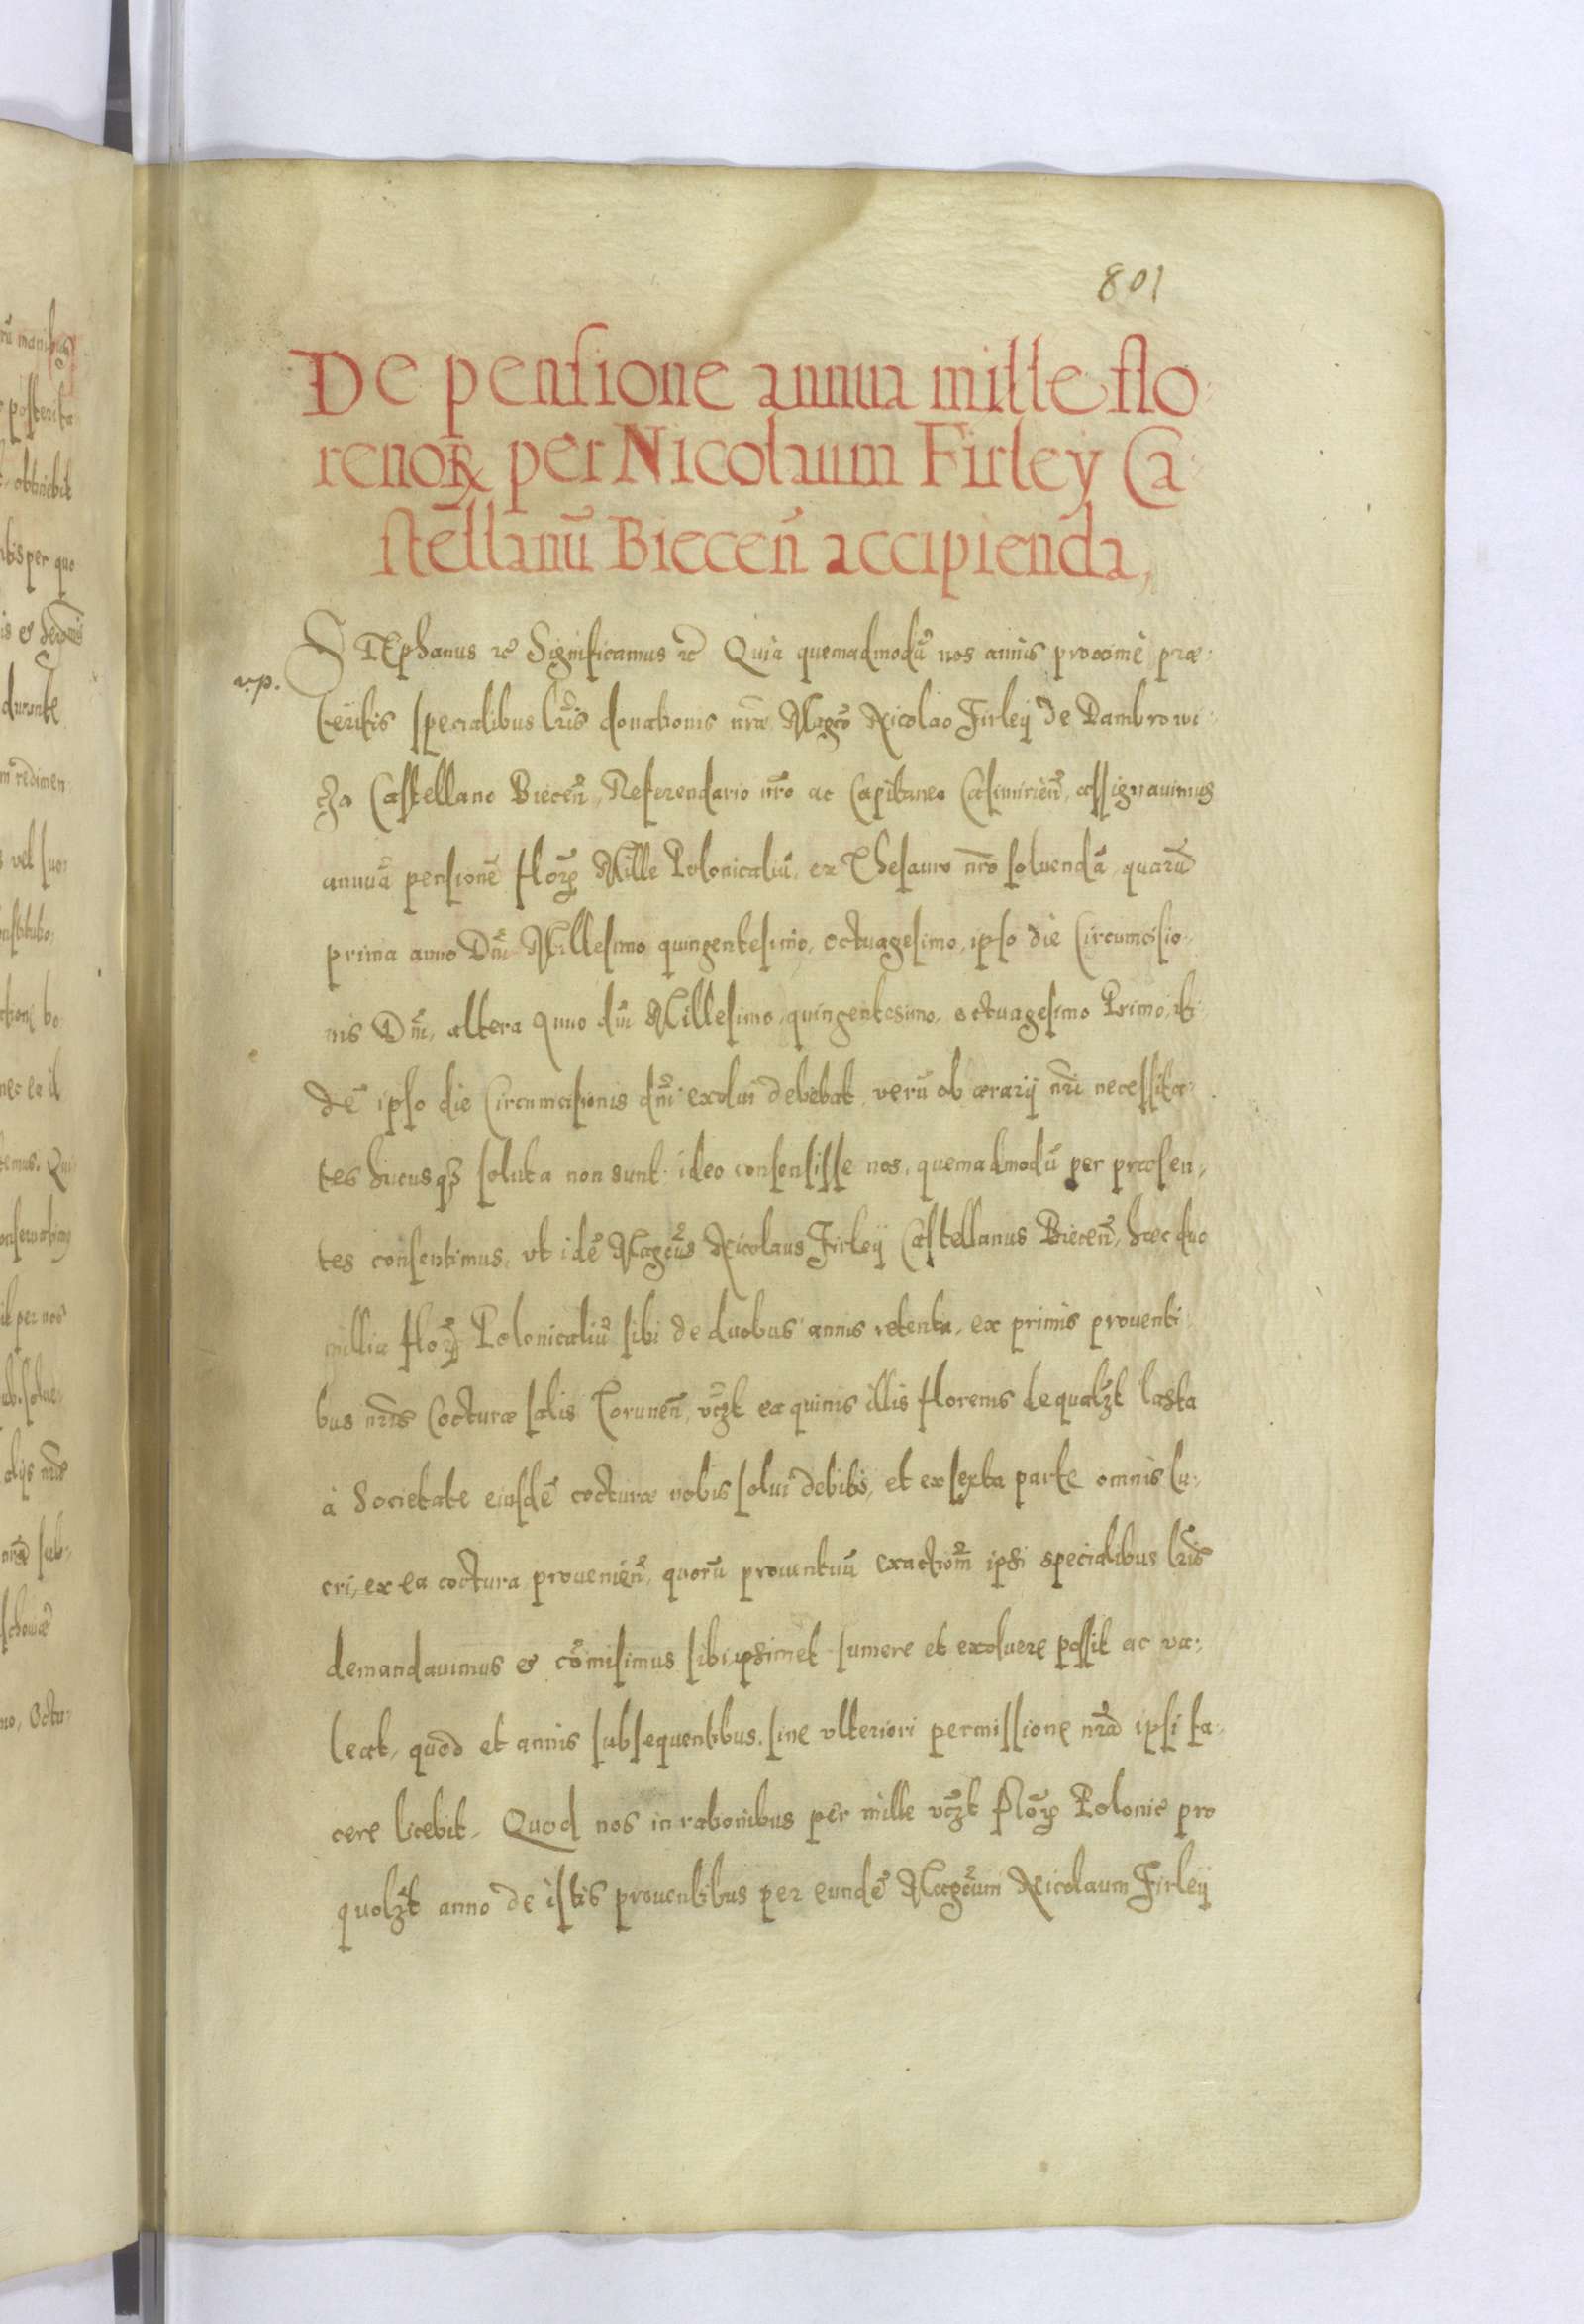 801
De pensione annua mille flo:
renoꝝ per Nicolaum Firley Ca:
stellanū Biecen̄ accipienda,
STEphanus ꝛc̄ Significamus ꝛc̄ Quia quemadmodū nos annis proxime præ:
v.p.
teritis specialibus lr̄is donationis nr̄æ Magc̄o Nicolao Firleij de Dambrowi:
cza Castellano Biecen̄, Referendario nr̄o ac Capitaneo Casimirien̄, assignauimus
annuā pensionē floꝝ Mille Polonicaliū, ex Thesauro nr̄o soluendā, quarū
prima anno Dn̄i Millesimo quingentesimo, octuagesimo, ipso die Circumcisio:
nis Dn̄i, altera Anno dn̄i Millesimo, quingentesimo, octuagesimo Primo, iti:
dē ipso die Circumcisionis dn̄i exolui debebat, verū ob ærarij nr̄i necessita:
tes hucusqꝫ soluta non sunt. ideo consensisse nos, quemadmodū per præsen:
tes consentimus, vt idē Magc̄us Nicolaus Firleij Castellanus Biecen̄, hæc duo
millia floꝝ Polonicaliū sibi de duobus annis retenta, ex primis prouenti:
bus nr̄is Cocturæ salis Torunen̄, vꝫt ex quinis illis florenis de qualꝫt lasta
à Societate eiusdē cocturæ nobis solui debitis, et ex sexta parte omnis lu:
cri, ex ea coctura prouenien̄, quorū prouentuū exactiom̄ ipsi specialibus lr̄is
demandauimus & cōmisimus sibi ipsimet sumere et exoluere possit ac va:
leat, quod et annis subsequentibus, sine vlteriori permissione nr̄a ipsi fa:
cere licebit. Quod nos in rationibus per mille vꝫt floꝝ Polonic̄ pro
quolꝫt anno de istis prouentibus per eundē Magc̄um Nicolaum Firleij